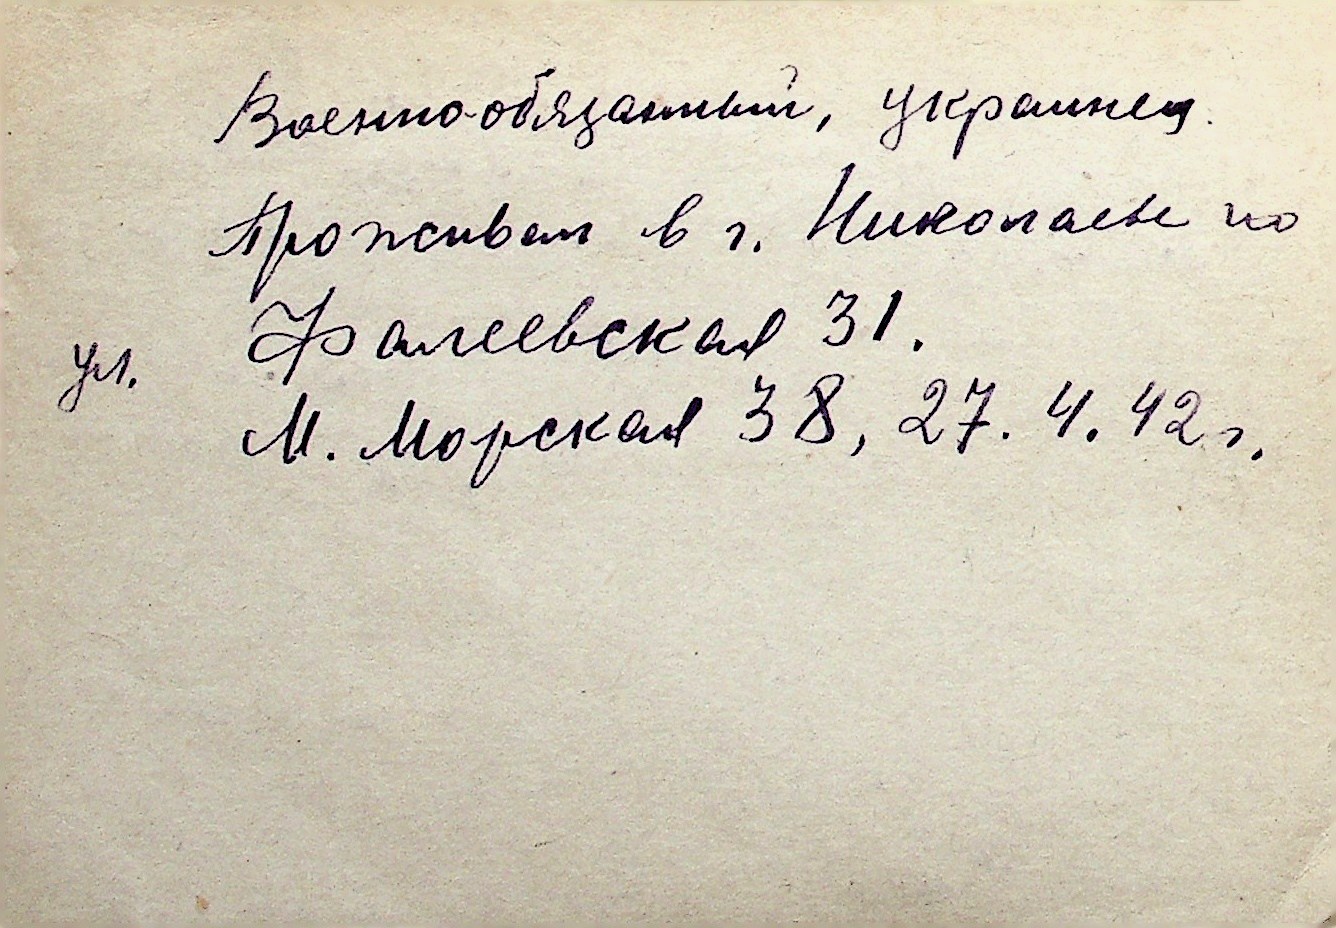 Военно-обязанный, украинец.
Проживал в г. Николаеве по
ул. Фалеевская 31.
М. Морская 38, 27.4.42 г.